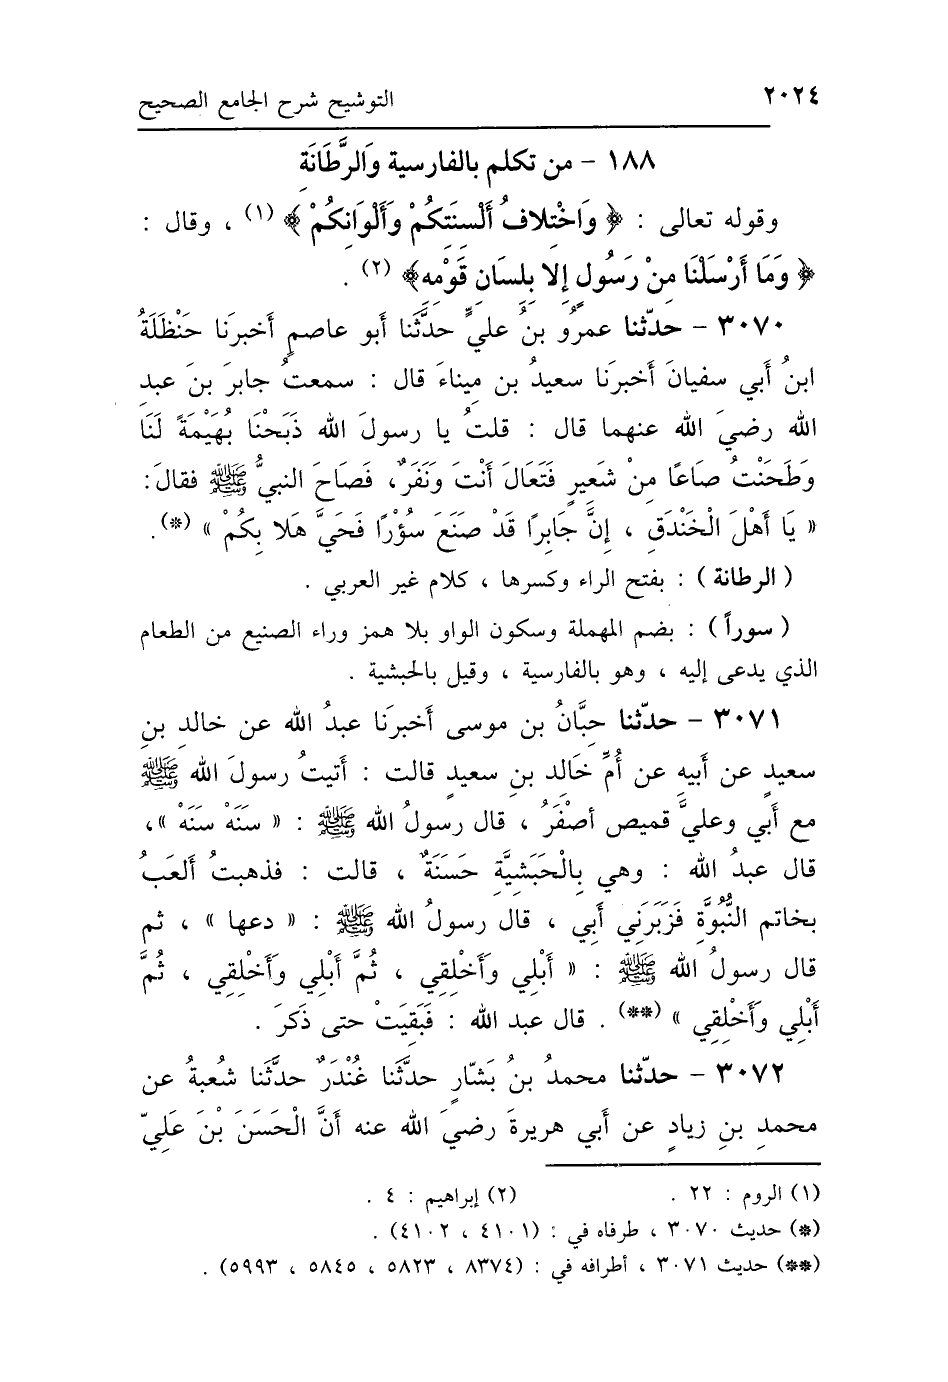 ٢٠٢٤
التوشيح شرح الجامع الصحيح
١٨٨ - من تكلم بالفارسية وَالرَّطَانَةِ
وقوله تعالى : ﴿ وَاخْتِلافُ أَلْسِنَتِكُمْ وَأَلْوَانِكُمْ ﴾ (١) ، وقال :
﴿ وَمَا أَرْسَلْنَا مِنْ رَسُولٍ إِلا بِلِسَانِ قَوْمِهِ﴾ (٢) .
٣٠٧٠ - حدّثنا عمرُو بنُ عليٍّ حدَّثَنا أبو عاصمٍ أخبرَنا حَنْظَلَةُ
ابنُ أبي سفيانَ أخبرَنا سعيدُ بن مِيناءَ قال : سمعتُ جابرَ بنَ عبدِ
الله رضيَ الله عنهما قال : قلتُ يا رسولَ الله ذَبَحْنَا بُهَيْمَةً لَنَا
وَطَحَنْتُ صَاعًا مِنْ شَعِيرٍ فَتَعَالَ أَنْتَ وَنَفَرٌ، فَصَاحَ النبيُّ ﷺ فقالَ:
« يَا أَهْلَ الْخَنْدَقِ ، إِنَّ جَابِرًا قَدْ صَنَعَ سُؤْرًا فَحَيَّ هَلا بِكُمْ » (*).
( الرطانة ) : بفتح الراء وكسرها ، كلام غير العربي .
( سوراً ) : بضم المهملة وسكون الواو بلا همز وراء الصنيع من الطعام
الذي يدعى إليه ، وهو بالفارسية ، وقيل بالحبشية .
٣٠٧١ - حدّثنا حِبَّانُ بن موسى أخبرَنا عبدُ الله عن خالدِ بنِ
سعيدٍ عن أبيهِ عن أُمِّ خَالِدٍ بنِ سعيدٍ قالت : أتيتُ رسولَ الله ﷺ
مع أَبي وعليَّ قميص أصْفَرُ ، قال رسولُ الله ﷺ : « سَنَهْ سَنَهْ »،
قال عبدُ الله : وهي بِالْحَبَشِيَّةِ حَسَنَةٌ ، قالت : فذهبتُ ألعَبُ
بخاتم النُّبُوَّةِ فَزَبَرَنِي أَبي ، قال رسولُ الله ﷺ : « دعها » ، ثم
قال رسولُ الله ﷺ : « أَبْلِي وَأَخْلِقِي ، ثُمَّ أَبْلِي وَأَخْلِقِي ، ثُمَّ
أَبْلِي وَأَخْلِقِي » (**) . قال عبد الله : فَبَقِيَتْ حتى ذَكَرَ .
٣٠٧٢ - حدّثنا محمدُ بنُ بَشّارٍ حدَّثَنا غُنْدَرٌ حدَّثَنا شُعبةُ عن
محمدِ بنِ زيادٍ عن أبي هريرةَ رضيَ الله عنه أَنَّ الْحَسَنَ بْنَ عَلِيّ
(١) الروم : ٢٢ . (٢) إبراهيم : ٤ .
(*) حديث ٣٠٧٠ ، طرفاه في : (٤١٠١ ، ٤١٠٢) .
(**) حديث ٣٠٧١ ، أطرافه في : (٨٣٧٤ ، ٥٨٢٣ ، ٥٨٤٥ ، ٥٩٩٣) .